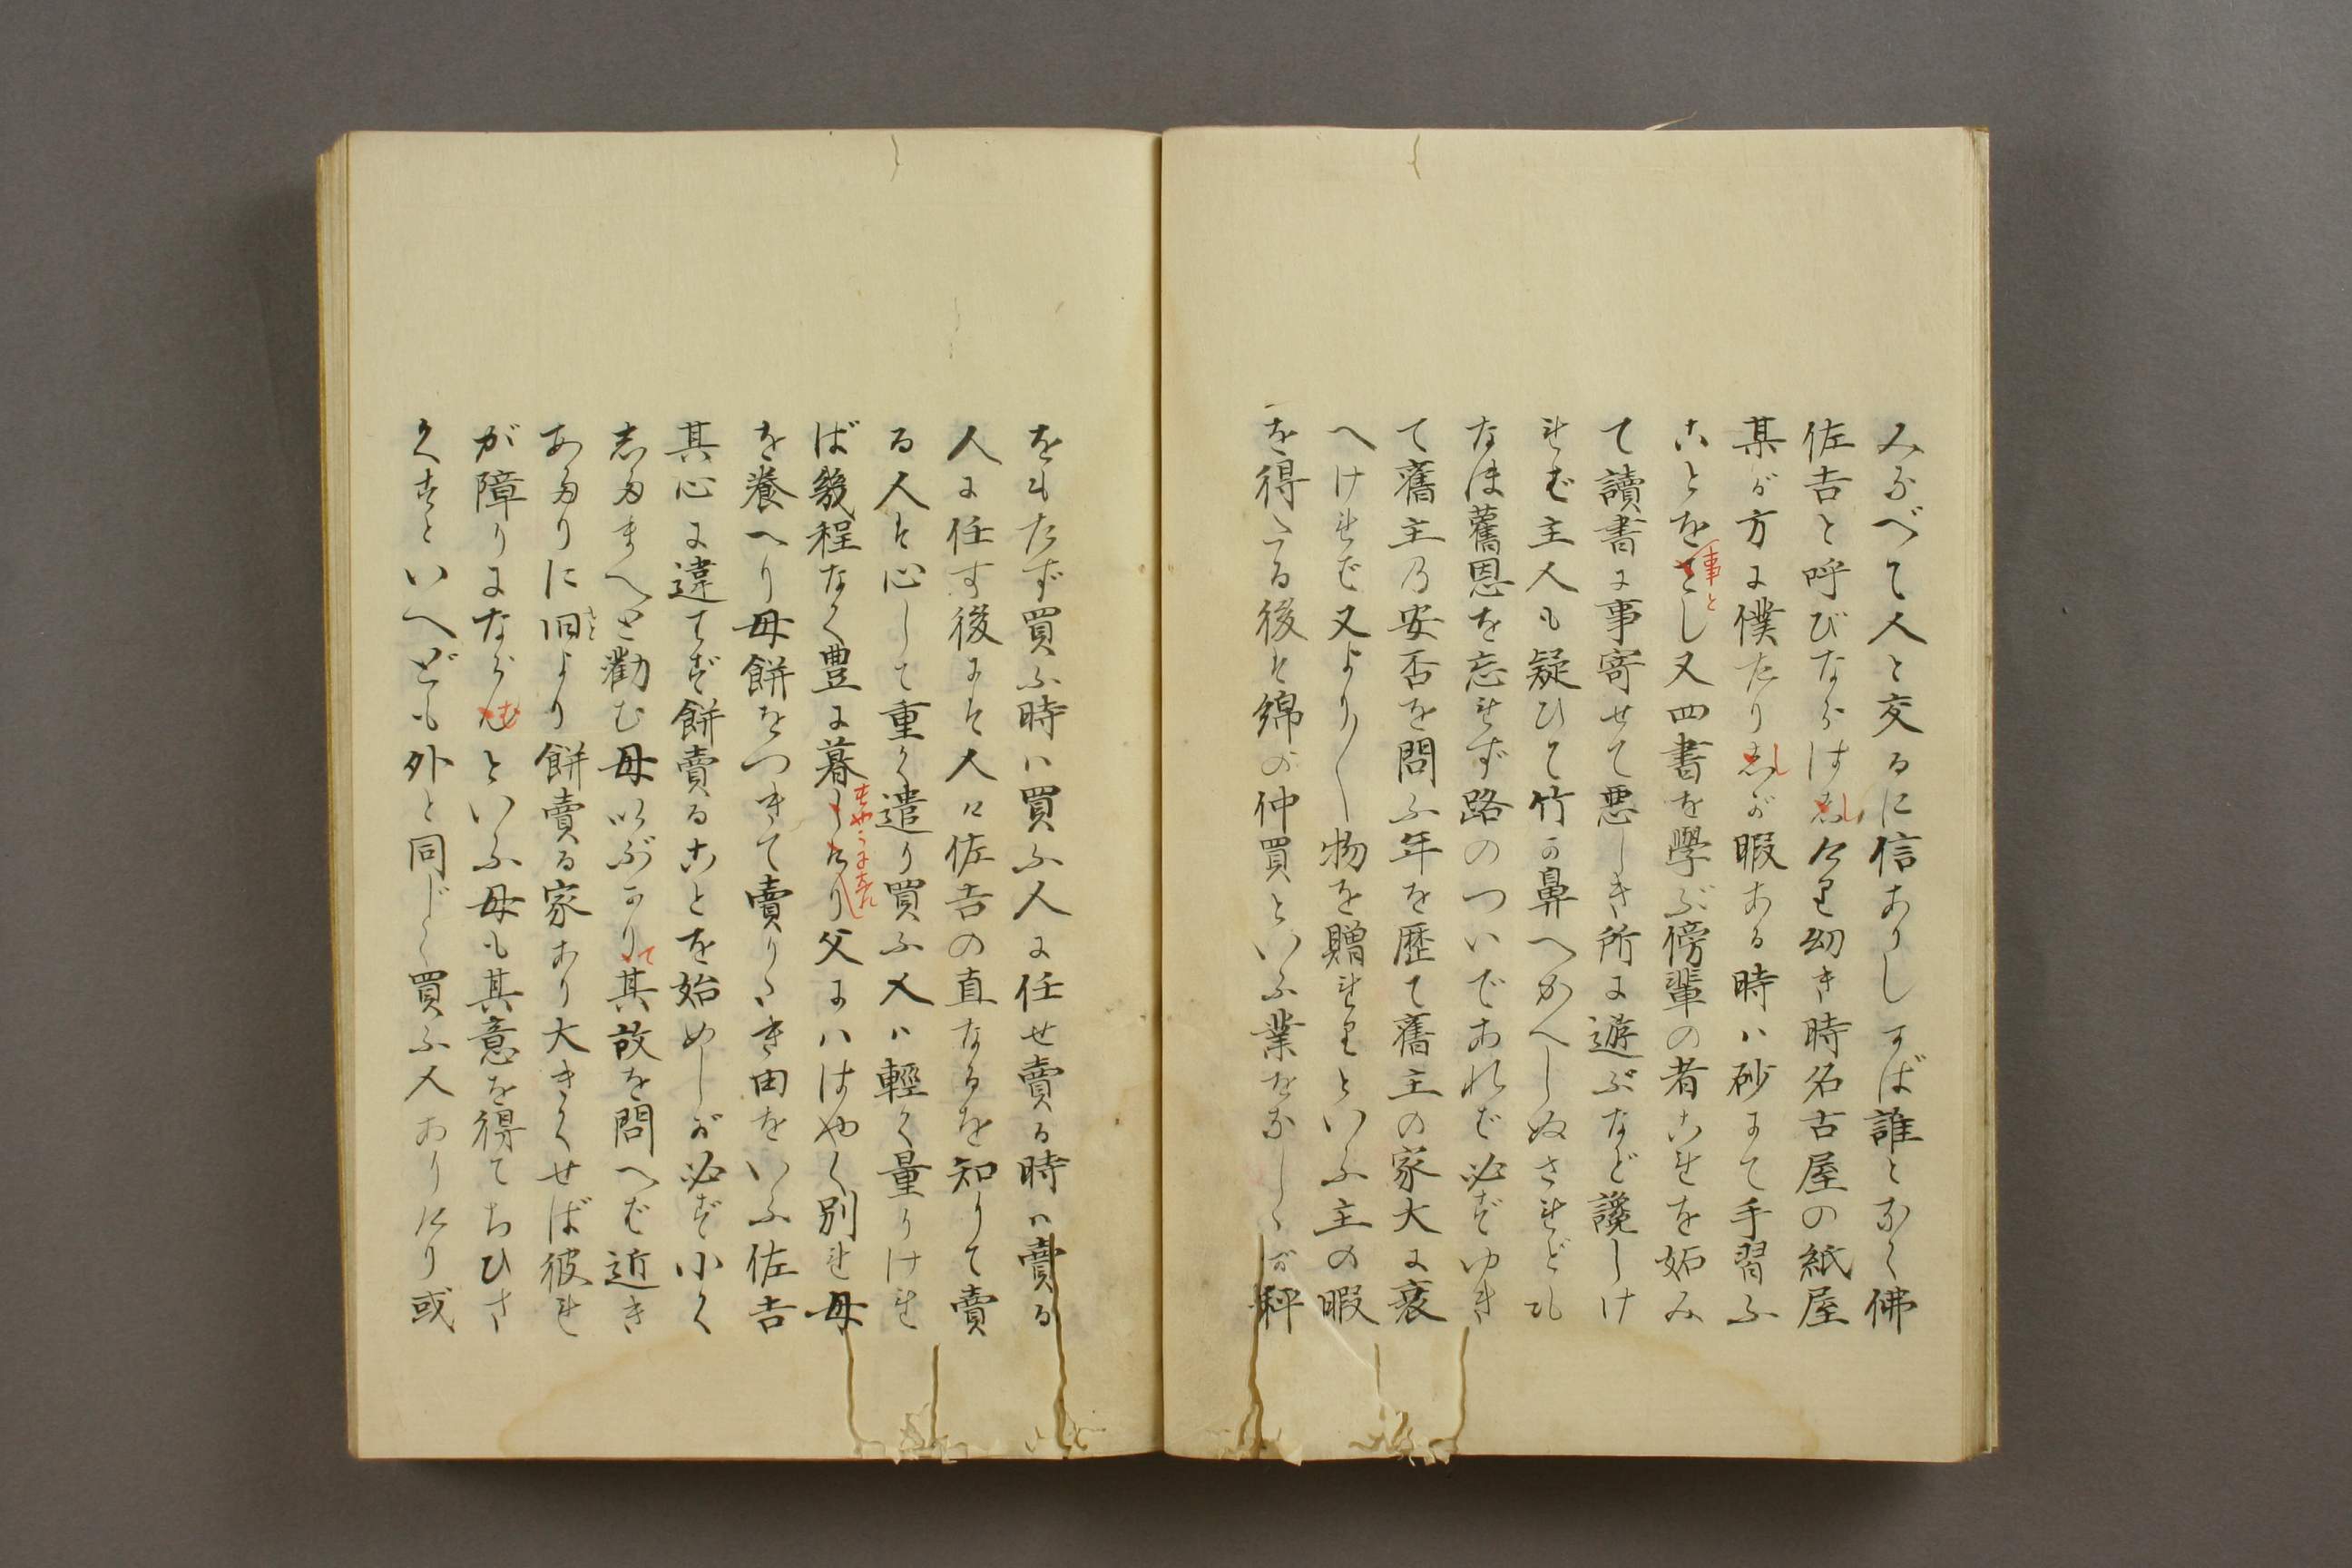 みなべて人と交るに信ありしかば誰となく佛
佐吉と呼びならはしけり幼き時名古屋の紙屋
某が方に僕たりしが暇ある時ハ砂にて手習ふ
ことを事とし又四書を學ぶ傍輩の者これを妬み
て讀書に事寄せて悪しき所に遊ぶなど讒しけ
れば主人も疑ひて竹が鼻へかへしぬされども
なほ舊恩を忘れず路のついであれば必ずゆき
て舊主乃安否を問ふ年を歴て舊主の家大に衰
へければ又より〱物を贈れりといふ主の暇
を得てる後は綿の仲買といふ業をなしゝが秤
をもたず買ふ時ハ買ふ人に任せ賣る時ハ賣る
人に任す後には人々佐吉の直なるを知りて賣
る人は心して重く遣り買ふ人ハ輕く量りけれ
ば幾程なく豊に暮すやうになれり父にハはやく別れ母
を養へり母餅をつきて賣りたき由をいふ佐吉
其心に違てず餅賣ることを始めしが必ず小く
したまへと勸む母いぶかりて其故を問へば近き
あたりに旧より餅賣る家あり大きくせば彼れ
が障りにならむといふ母も其意を得てちひさ
くすといへども外と同じく買ふ人ありけり或